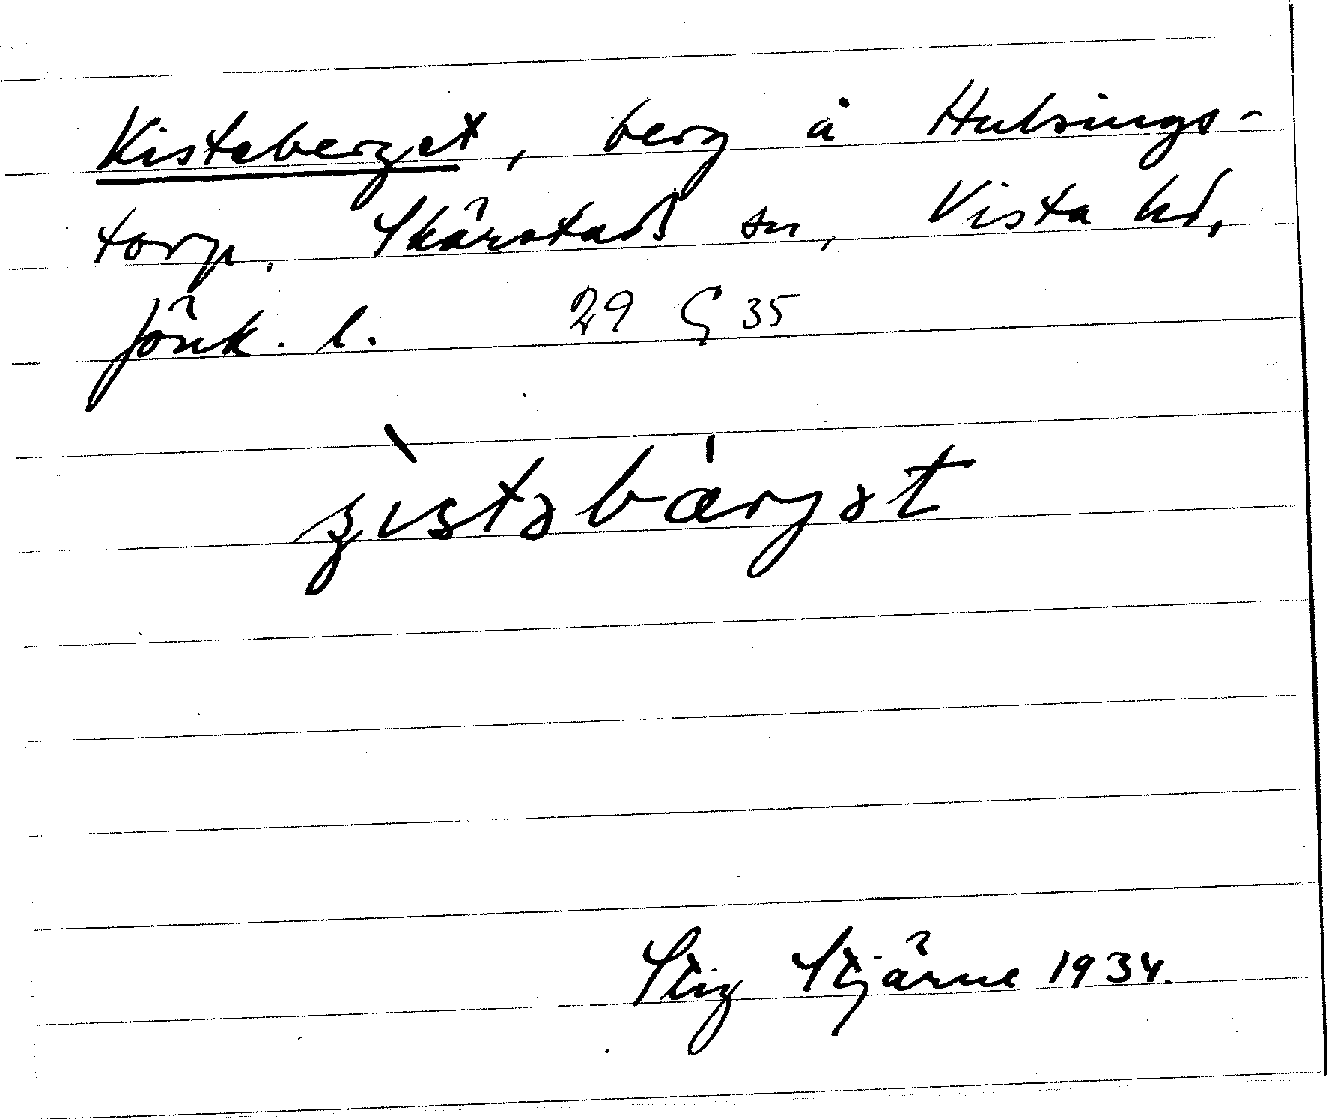 Kisteberget, berg å Hulsings-
torp. Skärstads sn, Vista hd,
Jönk. l. 29 G 35
ʒistəbærgət
Stig Stjärne 1934.